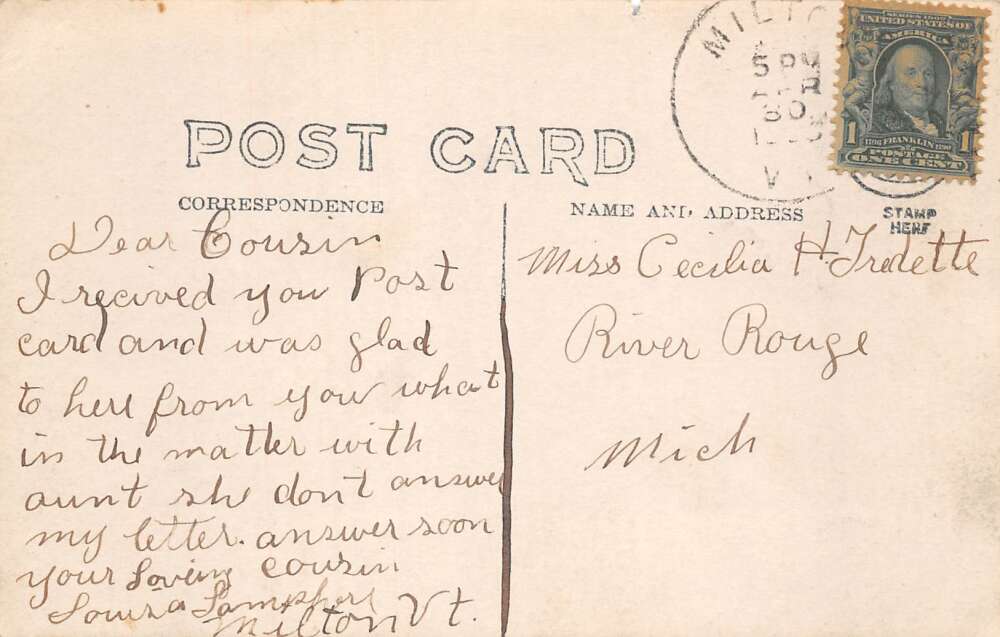 POST CARD
CORRESPONDENCE
NAME AND ADDRESS
STAMP
HERE
MILTO
5 PM
APR
30
VT
SERIES 1902
UNITED STATES OF
AMERICA
1
1
1706 FRANKLIN 1790
POSTAGE
ONE CENT
Dear Cousin
I recived you Post
card and was glad
to here from you what
in the matter with
aunt she don't answer
my letter. answer soon
your Loving cousin
Louisa
Milton Vt.
Miss Cecilia H. Fredette
River Rouge
Mich